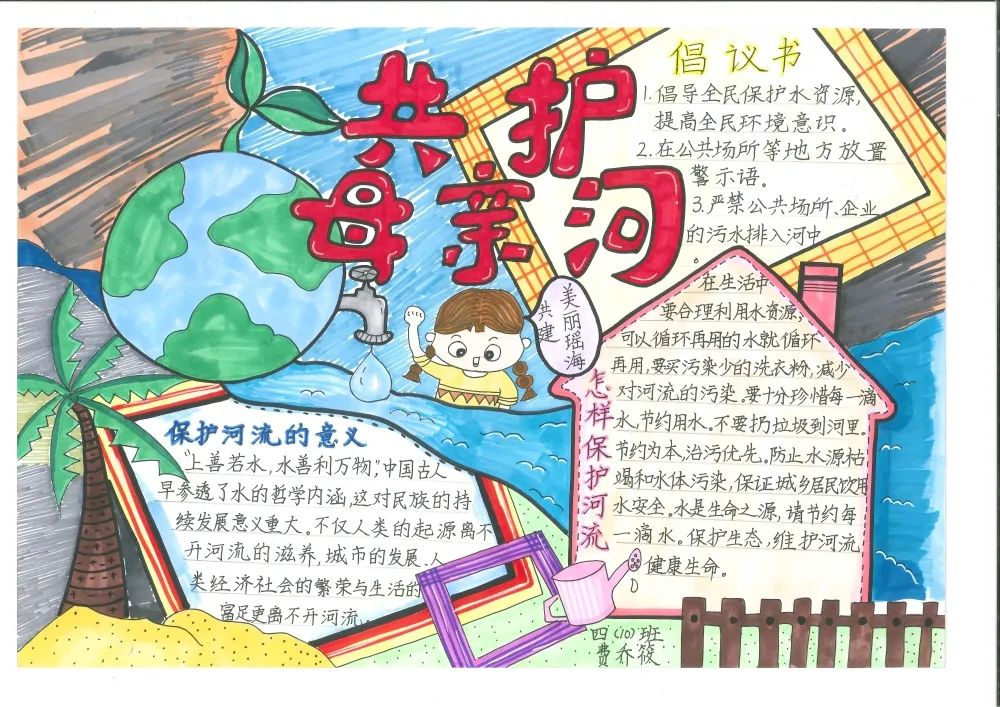 共护
母亲河
倡议书
1.倡导全民保护水资源,
提高全民环境意识。
2.在公共场所等地方放置
警示语。
3.严禁公共场所、企业
的污水排入河中
。
共建
美丽瑶海
怎样保护河流
在生活中
要合理利用水资源,
可以循环再用的水就循环
再用,要买污染少的洗衣粉,减少
对河流的污染。要十分珍惜每一滴
水,节约用水。不要扔垃圾到河里。
节约为本,治污优先。防止水源枯
竭和水体污染,保证城乡居民饮用
水安全。水是生命之源,请节约每
一滴水。保护生态,维护河流
健康生命。
保护河流的意义
“上善若水,水善利万物”,中国古人
早参透了水的哲学内涵,这对民族的持
续发展意义重大。不仅人类的起源离不
开河流的滋养,城市的发展、人
类经济社会的繁荣与生活的
富足更离不开河流。
四(10)班
费乔筱